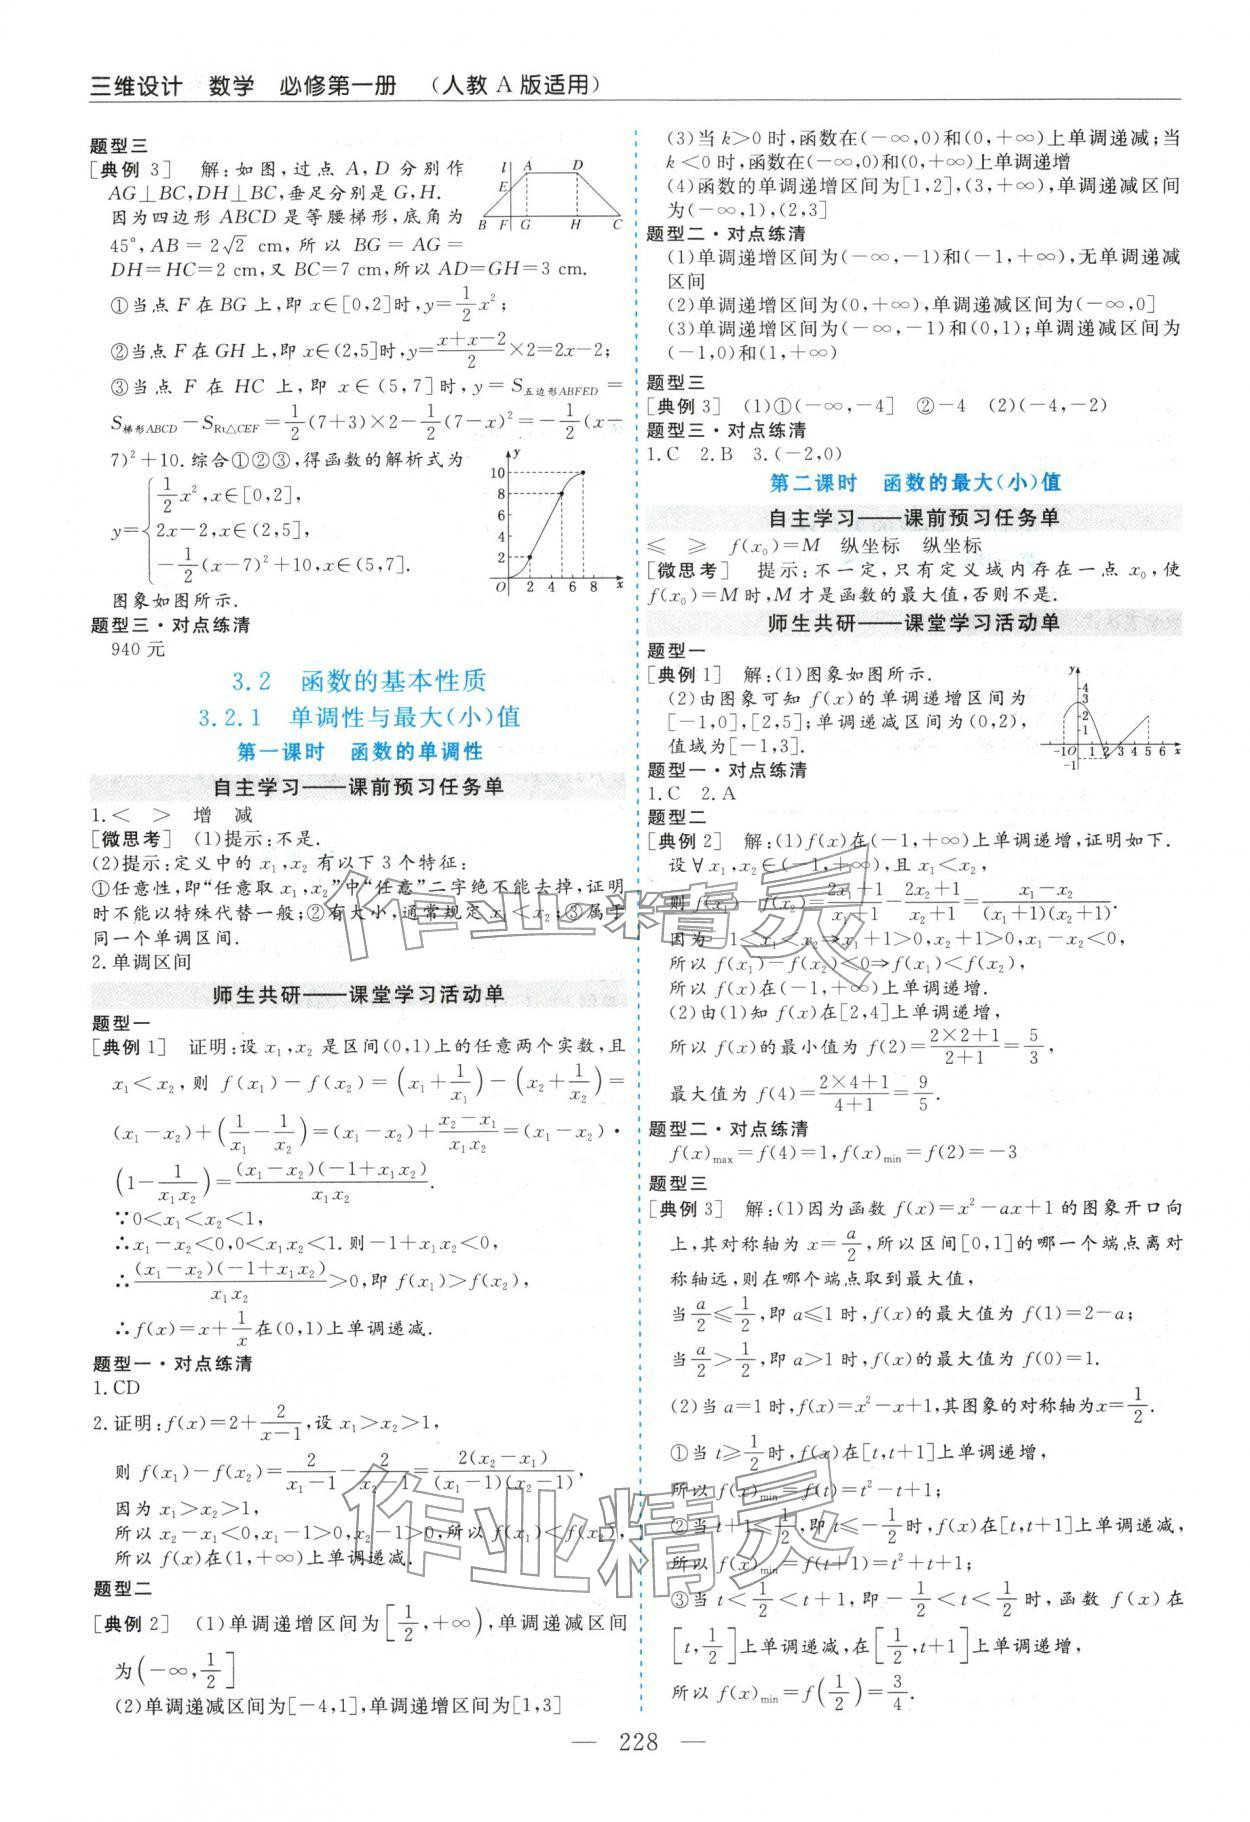 三维设计 数学 必修第一册 （人教 A 版适用）
题型三
[典例 3] 解:如图,过点 A,D 分别作
AG⊥BC,DH⊥BC,垂足分别是 G,H.
因为四边形 ABCD 是等腰梯形,底角为
45°,AB=2√2 cm,所以 BG=AG=
DH=HC=2 cm,又 BC=7 cm,所以 AD=GH=3 cm.
l A D
E
B F G H C
①当点 F 在 BG 上,即 x∈[0,2]时,y=1/2x²;
②当点 F 在 GH 上,即 x∈(2,5]时,y=(x+x-2)/2×2=2x-2;
③当点 F 在 HC 上,即 x∈(5,7]时,y=S五边形ABFED=
S梯形ABCD-SRt△CEF=1/2(7+3)×2-1/2(7-x)²=-1/2(x-
7)²+10.综合①②③,得函数的解析式为
y={1/2x²,x∈[0,2],
2x-2,x∈(2,5],
-1/2(x-7)²+10,x∈(5,7].
y
10
8
6
4
2
O 2 4 6 7 8 x
图象如图所示.
题型三·对点练清
940 元
3.2 函数的基本性质
3.2.1 单调性与最大(小)值
第一课时 函数的单调性
自主学习——课前预习任务单
1.< > 增 减
[微思考] (1)提示:不是.
(2)提示:定义中的 x₁,x₂ 有以下 3 个特征:
①任意性,即“任意取 x₁,x₂”中“任意”二字绝不能去掉,证明
时不能以特殊代替一般;②有大小,通常规定 x₁<x₂;③属于
同一个单调区间.
2.单调区间
师生共研——课堂学习活动单
题型一
[典例 1] 证明:设 x₁,x₂ 是区间(0,1)上的任意两个实数,且
x₁<x₂,则 f(x₁)-f(x₂)=(x₁+1/x₁)-(x₂+1/x₂)=
(x₁-x₂)+(1/x₁-1/x₂)=(x₁-x₂)+(x₂-x₁)/(x₁x₂)=(x₁-x₂)·
(1-1/(x₁x₂))=(x₁-x₂)(-1+x₁x₂)/(x₁x₂).
∵0<x₁<x₂<1,
∴x₁-x₂<0,0<x₁x₂<1.则-1+x₁x₂<0,
∴(x₁-x₂)(-1+x₁x₂)/(x₁x₂)>0,即 f(x₁)>f(x₂),
∴f(x)=x+1/x在(0,1)上单调递减.
题型一·对点练清
1.CD
2.证明:f(x)=2+2/(x-1),设 x₁>x₂>1,
则 f(x₁)-f(x₂)=2/(x₁-1)-2/(x₂-1)=2(x₂-x₁)/((x₁-1)(x₂-1)),
因为 x₁>x₂>1,
所以 x₂-x₁<0,x₁-1>0,x₂-1>0,所以 f(x₁)<f(x₂),
所以 f(x)在(1,+∞)上单调递减.
题型二
[典例 2] (1)单调递增区间为[1/2,+∞),单调递减区间
为(-∞,1/2]
(2)单调递减区间为[-4,1],单调递增区间为[1,3]
(3)当 k>0 时,函数在(-∞,0)和(0,+∞)上单调递减;当
k<0 时,函数在(-∞,0)和(0,+∞)上单调递增
(4)函数的单调递增区间为[1,2],(3,+∞),单调递减区间
为(-∞,1),(2,3]
题型二·对点练清
(1)单调递增区间为(-∞,-1)和(-1,+∞),无单调递减
区间
(2)单调递增区间为(0,+∞),单调递减区间为(-∞,0]
(3)单调递增区间为(-∞,-1)和(0,1);单调递减区间为
(-1,0)和(1,+∞)
题型三
[典例 3] (1)①(-∞,-4] ②-4 (2)(-4,-2)
题型三·对点练清
1.C 2.B 3.(-2,0)
第二课时 函数的最大(小)值
自主学习——课前预习任务单
≤ ≥ f(x₀)=M 纵坐标 纵坐标
[微思考] 提示:不一定,只有定义域内存在一点 x₀,使
f(x₀)=M 时,M 才是函数的最大值,否则不是.
师生共研——课堂学习活动单
题型一
[典例 1] 解:(1)图象如图所示.
(2)由图象可知 f(x)的单调递增区间为
[-1,0],[2,5];单调递减区间为(0,2),
值域为[-1,3].
y
4
3
2
1
-1 O 1 2 3 4 5 6 x
-1
题型一·对点练清
1.C 2.A
题型二
[典例 2] 解:(1)f(x)在(-1,+∞)上单调递增,证明如下.
设∀x₁,x₂∈(-1,+∞),且 x₁<x₂,
则 f(x₁)-f(x₂)=(2x₁+1)/(x₁+1)-(2x₂+1)/(x₂+1)=(x₁-x₂)/((x₁+1)(x₂+1)).
因为-1<x₁<x₂⇒x₁+1>0,x₂+1>0,x₁-x₂<0,
所以 f(x₁)-f(x₂)<0⇒f(x₁)<f(x₂),
所以 f(x)在(-1,+∞)上单调递增.
(2)由(1)知 f(x)在[2,4]上单调递增,
所以 f(x)的最小值为 f(2)=(2×2+1)/(2+1)=5/3,
最大值为 f(4)=(2×4+1)/(4+1)=9/5.
题型二·对点练清
f(x)max=f(4)=1,f(x)min=f(2)=-3
题型三
[典例 3] 解:(1)因为函数 f(x)=x²-ax+1 的图象开口向
上,其对称轴为 x=a/2,所以区间[0,1]的哪一个端点离对
称轴远,则在哪个端点取到最大值,
当a/2≤1/2,即 a≤1 时,f(x)的最大值为 f(1)=2-a;
当a/2>1/2,即 a>1 时,f(x)的最大值为 f(0)=1.
(2)当 a=1 时,f(x)=x²-x+1,其图象的对称轴为x=1/2.
①当 t≥1/2时,f(x)在[t,t+1]上单调递增,
所以 f(x)min=f(t)=t²-t+1;
②当 t+1≤1/2,即 t≤-1/2时,f(x)在[t,t+1]上单调递减,
所以 f(x)min=f(t+1)=t²+t+1;
③当 t<1/2<t+1,即-1/2<t<1/2时,函数 f(x)在
[t,1/2]上单调递减,在[1/2,t+1]上单调递增,
所以 f(x)min=f(1/2)=3/4.
作业精灵
作业精灵
— 228 —